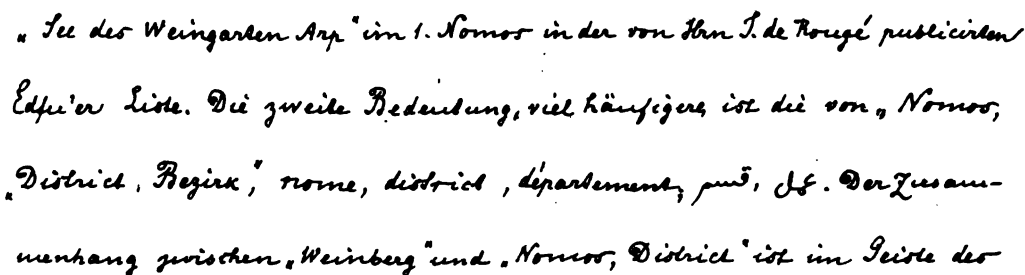 „See des Weingarten Arp" im 1. Nomos in der von Hrn J. de Rougé publicirten
Edfu'er Liste. Die zweite Bedeutung, viel häufigere, ist die von „Nomos,
„District, Bezirk", nome, district, département,
Der Zusam-
menhang zwischen „Weinberg" und „Nomos, District" ist im Geiste des